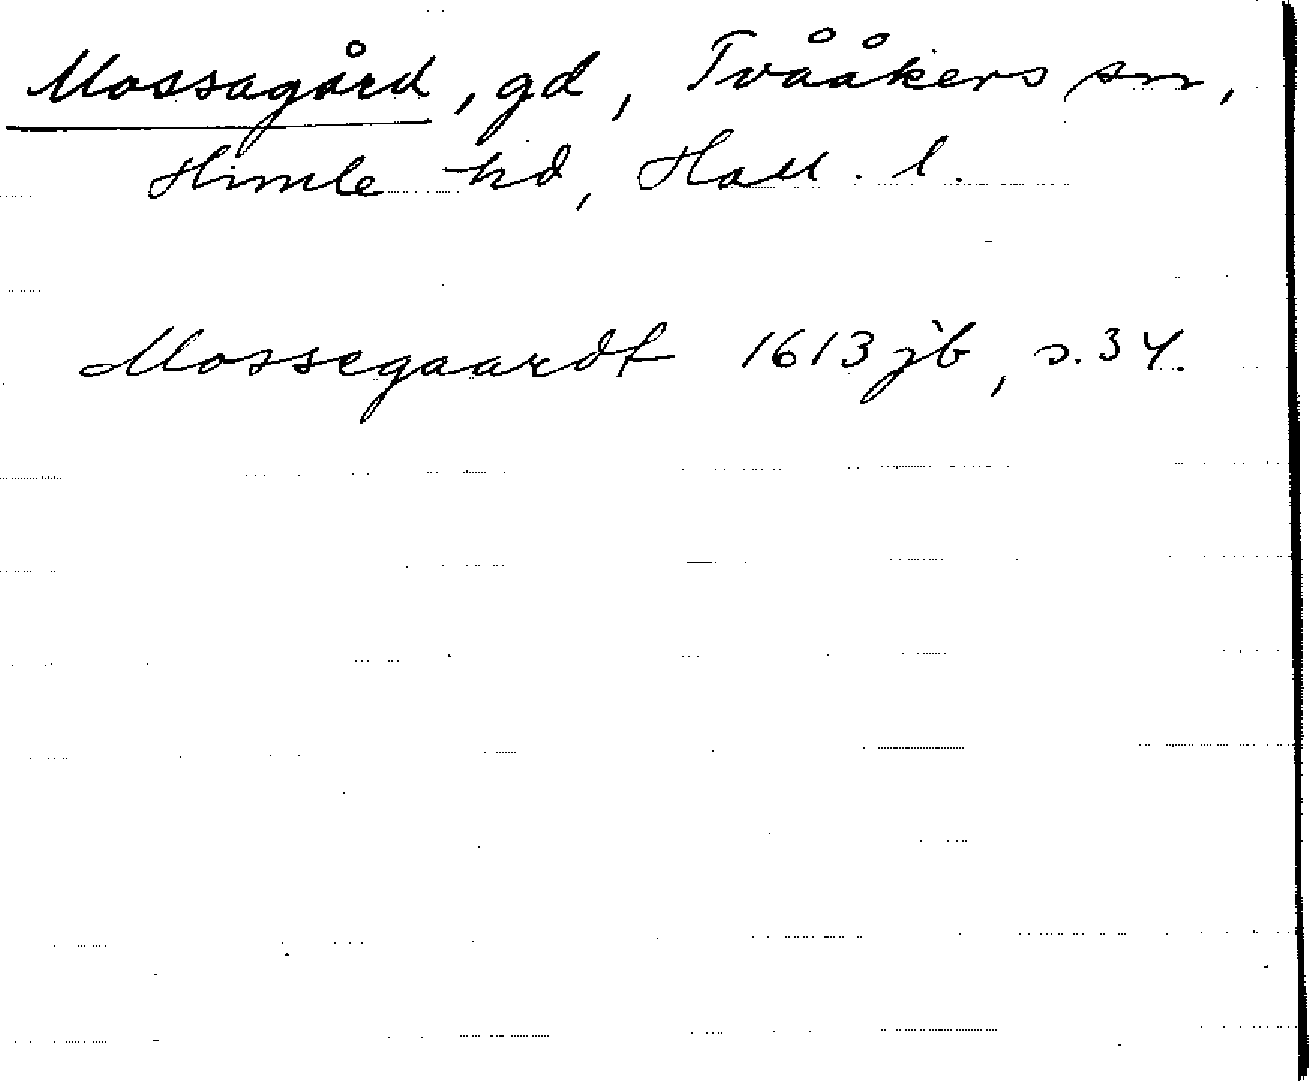 Mossagård, gd, Tvååkers sn,
Himle hd, Hall. l.
Mossegaardt 1613 jb, s. 34.